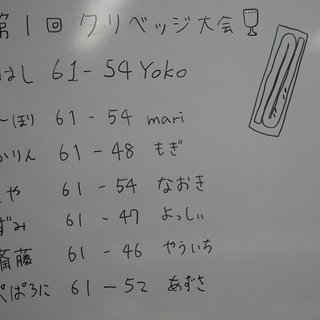 第1回 クリベッジ大会
はし 61-54 Yoko
ーぼり 61-54 mari
かりん 61-48 もぎ
や 61-54 なおき
ずみ 61-47 よっしぃ
斎藤 61-46 やういち
ぺぱろに 61-52 あずさ